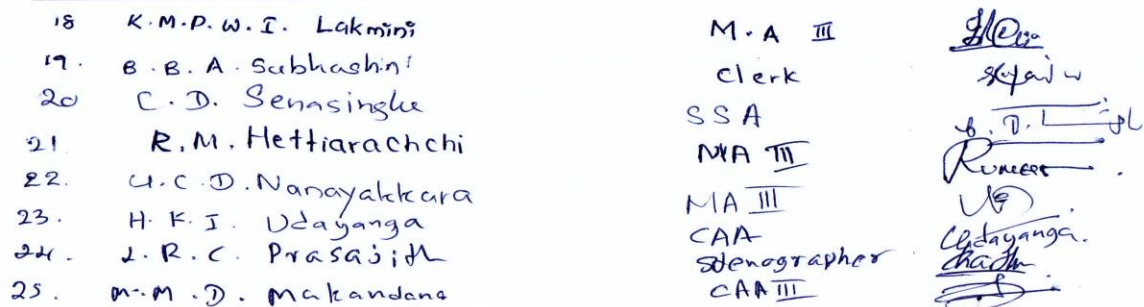 18 K.M.P.W.I. Lakmini M.A III
19. B.B.A. Subhashini Clerk
20 C.D. Senasinghe SSA
21 R.M. Hettiarachchi MA III
22. U.C.D. Nanayakkara MA III
23. H.K.I. Udayanga CAA Udayanga.
24. J.R.C. Prasajith Stenographer
25. M.M.D. Makandana CAA III